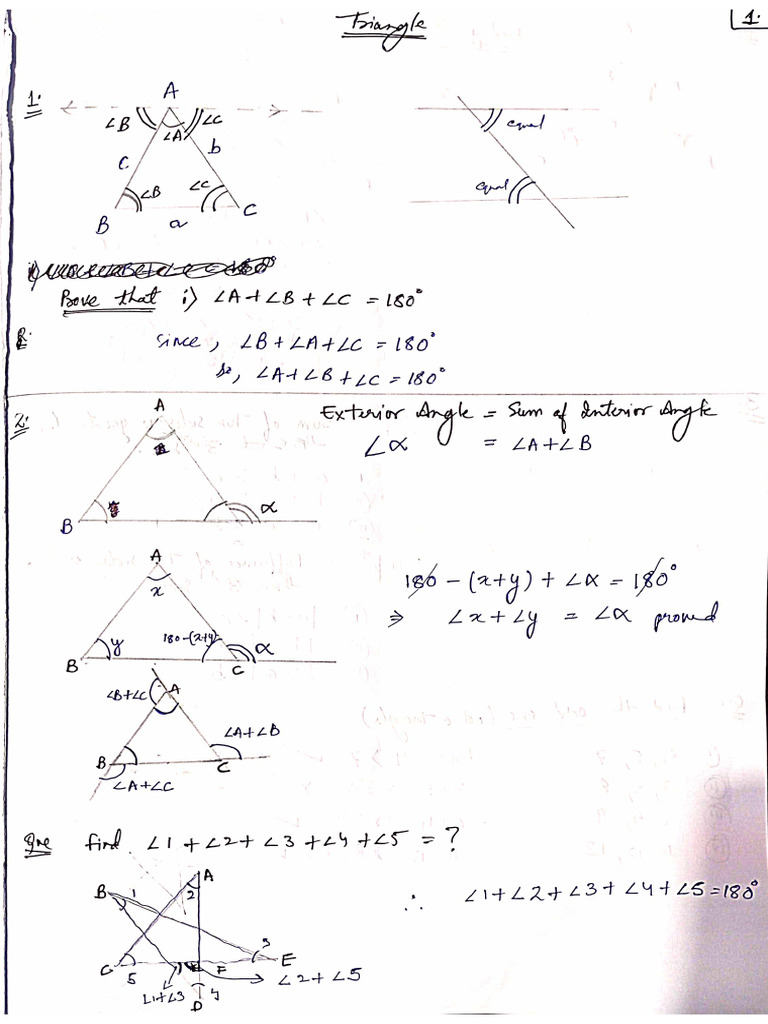 Triangle
1.
1:
A
∠B
∠A
∠C
c
b
∠B
∠C
B
a
C
equal
equal
Prove that i) ∠A+∠B+∠C = 180°
since, ∠B+∠A+∠C = 180°
so, ∠A+∠B+∠C = 180°
2:
A
B
α
Exterior Angle = Sum of Interior Angle
∠α = ∠A+∠B
A
x
B
y
180-(x+y)
α
C
180 - (x+y) + ∠α = 180°
⇒ ∠x+∠y = ∠α proved
∠B+∠C
A
∠A+∠B
B
C
∠A+∠C
Que find ∠1+∠2+∠3+∠4+∠5 = ?
A
B
1
2
3
C
5
F
E
∠1+∠3
4
D
∠2+∠5
∴ ∠1+∠2+∠3+∠4+∠5=180°